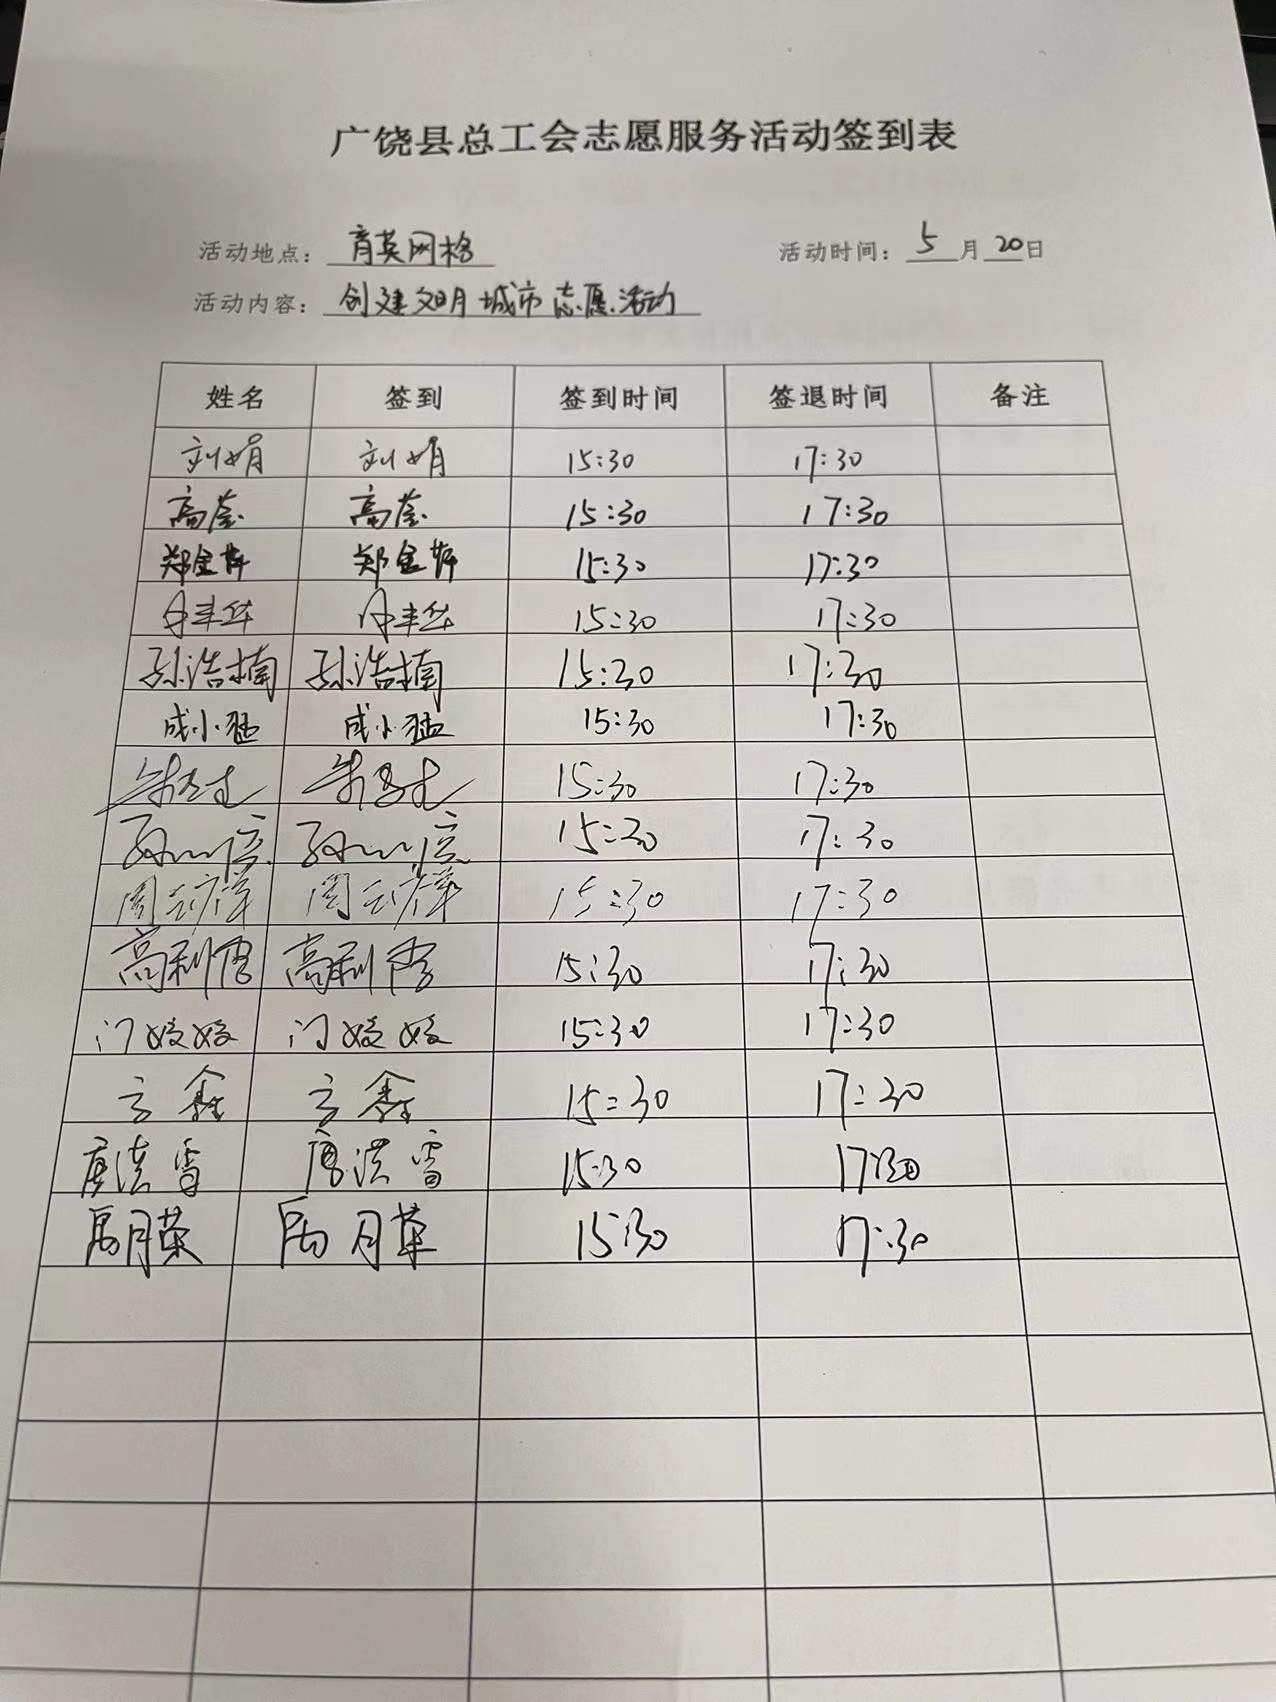 广饶县总工会志愿服务活动签到表
活动地点：育英网格 活动时间：5月20日
活动内容：创建文明城市志愿活动
姓名 签到 签到时间 签退时间 备注
刘娟 刘娟 15:30 17:30
高莹 高莹 15:30 17:30
郑金萍 郑金萍 15:30 17:30
15:30 17:30
孙浩楠 孙浩楠 15:30 17:30
成小猛 成小猛 15:30 17:30
15:30 17:30
15:30 17:30
周云祥 周云祥 15:30 17:30
高利 高利 15:30 17:30
门媛媛 门媛媛 15:30 17:30
鑫 鑫 15:30 17:30
唐洪雷 唐洪雷 15:30 17:30
禹月英 禹月英 15:30 17:30